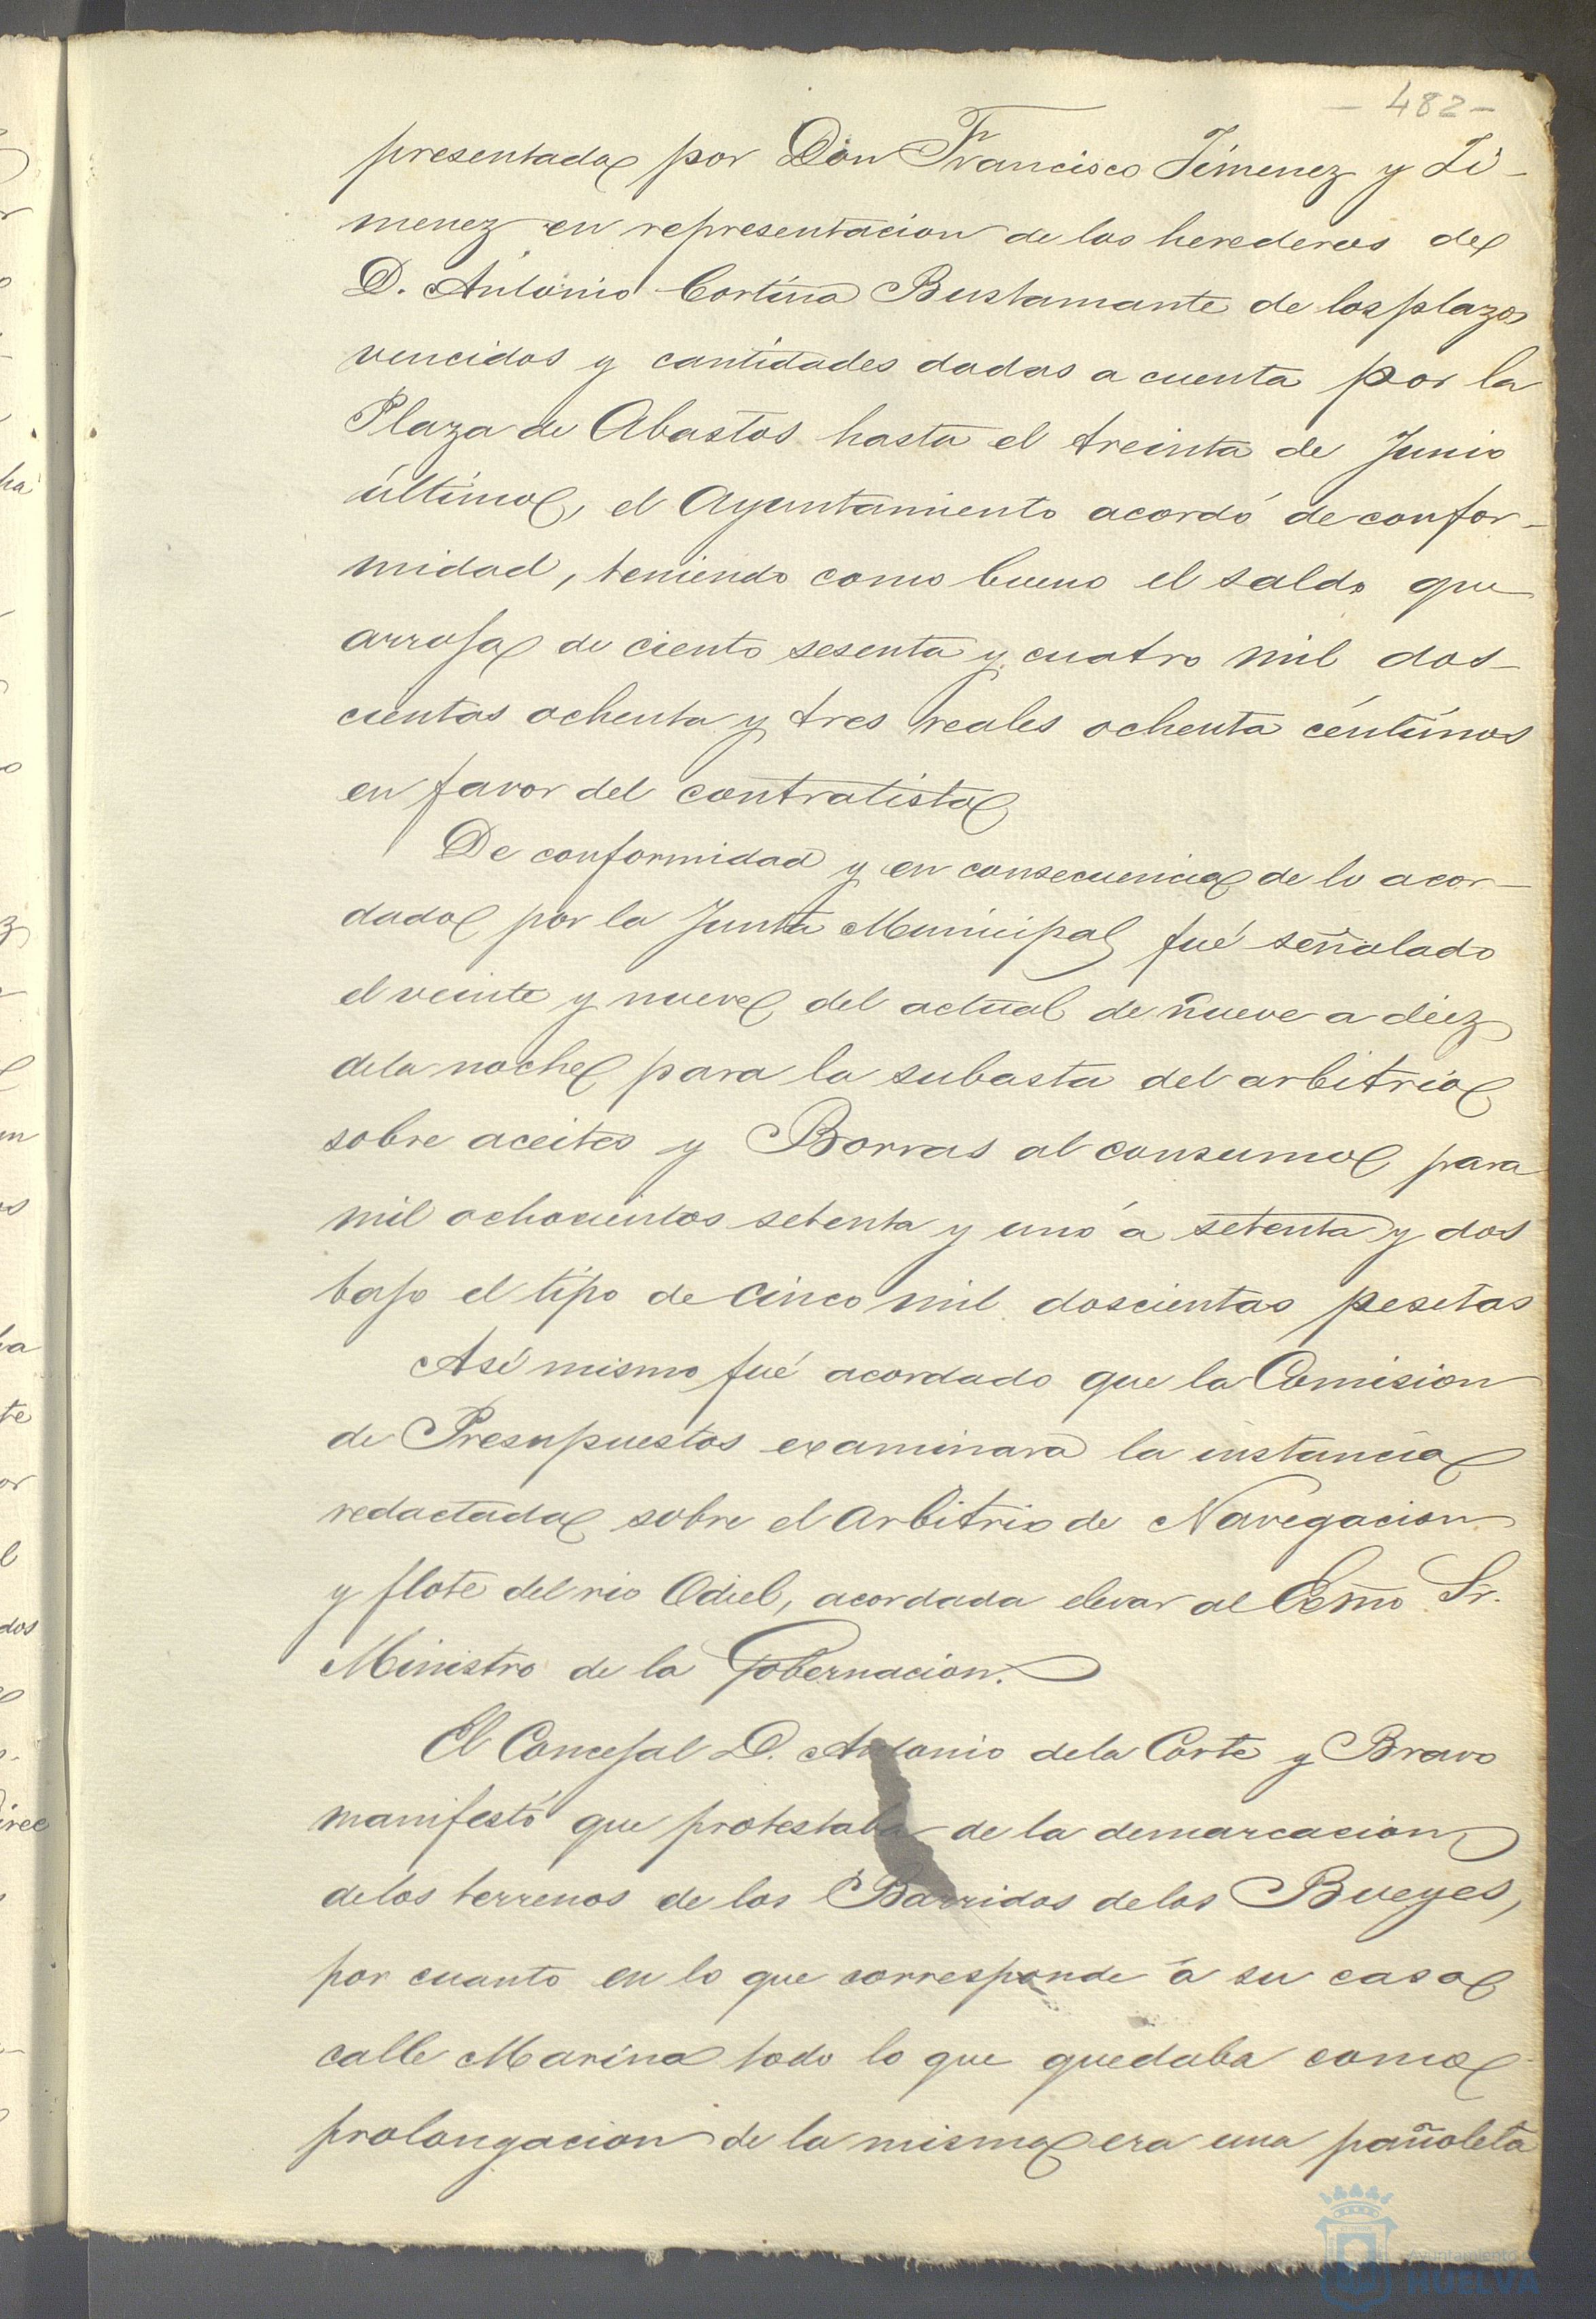 - 482 -
presentada por Don Francisco Jimenez y Ji-
menez en representacion de los herederos de
D. Antonio Cortina Bustamante de los plazos
vencidos y cantidades dadas a cuenta por la
Plaza de Abastos hasta el treinta de Junio
último, el Ayuntamiento acordó de confor-
midad, teniendo como bueno el saldo que
arroja de ciento sesenta y cuatro mil dos-
cientos ochenta y tres reales ochenta céntimos
en favor del contratista
De conformidad y en consecuencia de lo acor-
dado por la Junta Municipal fué señalado
el veinte y nueve del actual de nueve a diez
de la noche para la subasta del arbitrio
sobre aceites y Borras al consumo para
mil ochocientos setenta y uno á setenta y dos
bajo el tipo de cinco mil doscientas pesetas
Asi mismo fué acordado que la Comision
de Presupuestos examinara la instancia
redactada sobre el arbitrio de Navegacion
y flote del rio Odiel, acordada elevar al Ecsmo Sr.
Ministro de la Gobernacion.
El Concejal D. Antonio de la Corte y Bravo
manifestó que protestaba de la demarcacion
de los terrenos de los Barridos de los Bueyes,
por cuanto en lo que corresponde á su casa
calle Marina todo lo que quedaba como
prolongacion de la misma era una pañoleta
Ayuntamiento
HUELVA